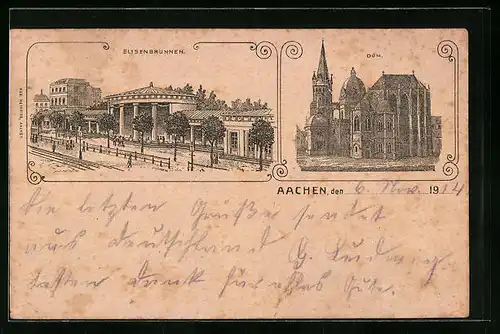 ELISENBRUNNEN.
DOM.
AACHEN, den 6. Nov. 1914
Die letzten Grüße sendet
aus Deutschland G. Ludwig
besten Dank für alles Gute.